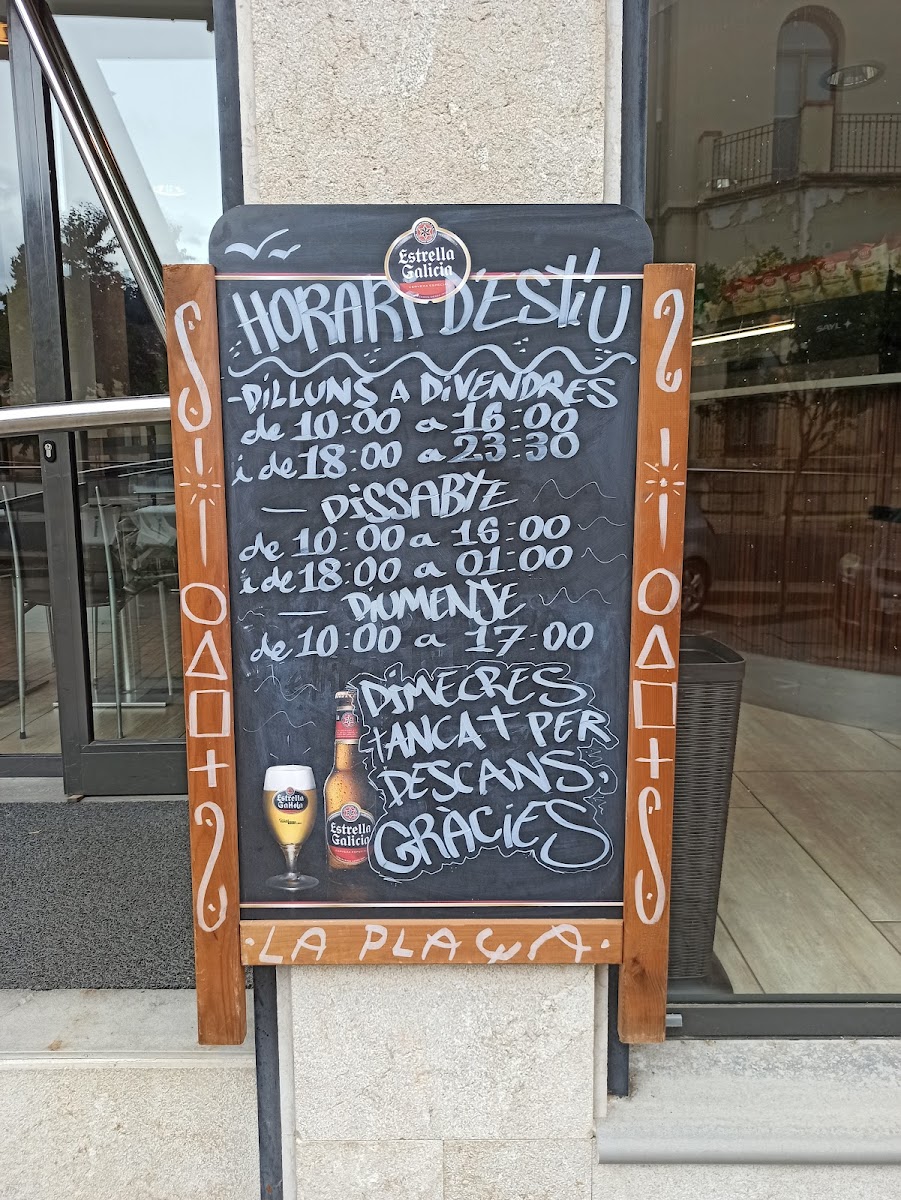 Estrella
Galicia
HORARI D'ESTIU
-DILLUNS A DIVENDRES
de 10:00 a 16:00
i de 18:00 a 23:30
DISSABTE
de 10:00 a 16:00
i de 18:00 a 01:00
DIUMENJE
de 10:00 a 17:00
DIMECRES
TANCAT PER
DESCANS,
GRÀCIES
Estrella
Galicia
Estrella
Galicia
·LA PLAÇA·